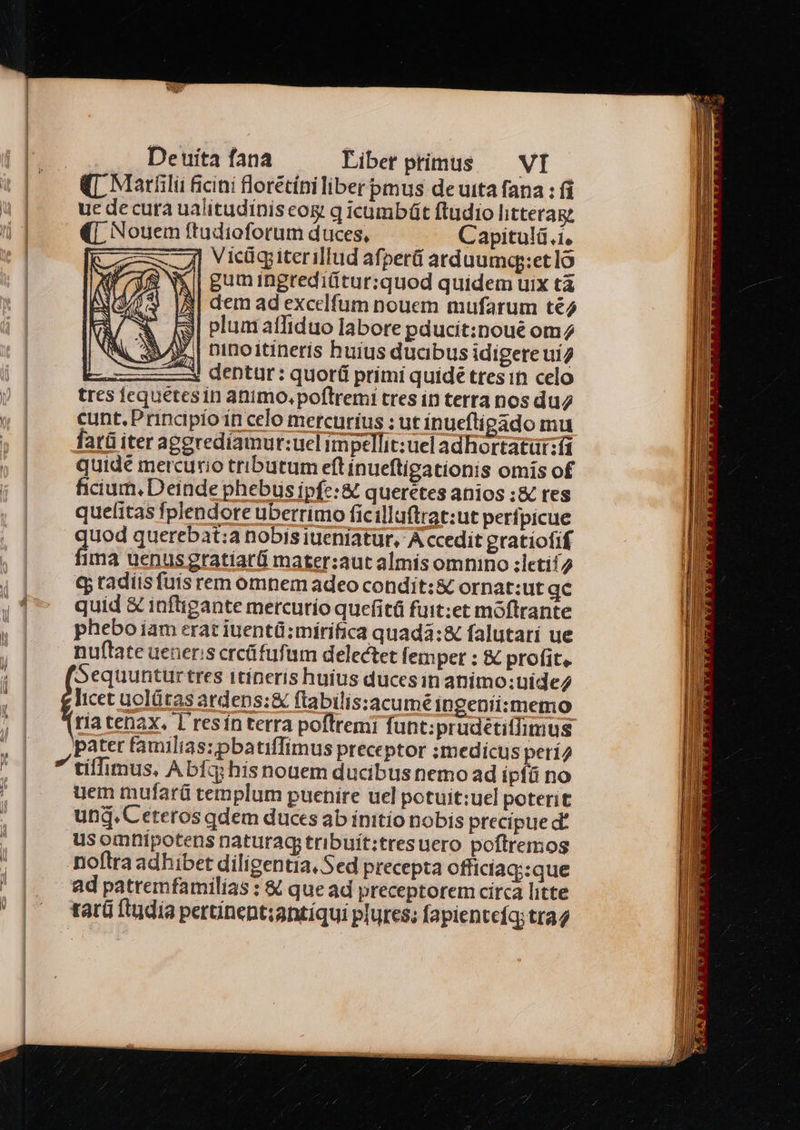 De uita sana Liber primus VI
❡ Marsilii ficini florētini liber pmus de uita sana : si
ue de cura ualitudinis eoꝝ q icumbūt studio litteraꝝ
❡ Nouem studiosorum duces, Capitulū.i.
Vicūqꝫ iter illud asperū arduumqꝫ:et lō
gum ingrediūtur:quod quidem uix tā
dem ad excelsum nouem musarum tē⸗
plum assiduo labore pducit:nouē om⸗
nino itineris huius ducibus idigere ui⸗
dentur : quorū primi quidē tres in celo
tres sequētes in animo.postremi tres in terra nos du⸗
cunt. Principio in celo mercurius : ut inuestigādo mu
sarū iter aggrediamur:uel impellit:uel adhortatur:si
quidē mercurio tributum est inuestigationis omis of
ficium. Deinde phebus ipse:& querētes anios :& res
quesitas splendore uberrimo sic illustrat:ut perspicue
quod querebat:a nobis iueniatur. Accedit gratiosis
sima uenus gratiarū mater:aut almis omnino :letis⸗
qꝫ radiis suis rem omnem adeo condit:& ornat:ut qc
quid & instigante mercurio quesitū fuit:et mōstrante
phebo iam erat iuentū:mirifica quadā:& salutari ue
nustate ueneris crcūfusum delectet semper : & prosit.
Sequuntur tres itineris huius duces in animo:uide⸗
licet uolūtas ardens:& stabilis:acumē ingenii:memo
ria tenax. Tres in terra postremi sunt:prudētissimus
pater familias:pbatissimus preceptor :medicus peri⸗
tissimus. Absqꝫ his nouem ducibus nemo ad ipsū no
uem musarū templum puenire uel potuit:uel poterit
unq̄. Ceteros qdem duces ab initio nobis precipue d'
us omnipotens naturaqꝫ tribuit:tres uero postremos
nostra adhibet diligentia. Sed precepta officiaqꝫ:que
ad patremfamilias : & que ad preceptorem circa litte
rarū studia pertinent:antiqui plures: sapientesqꝫ tra⸗